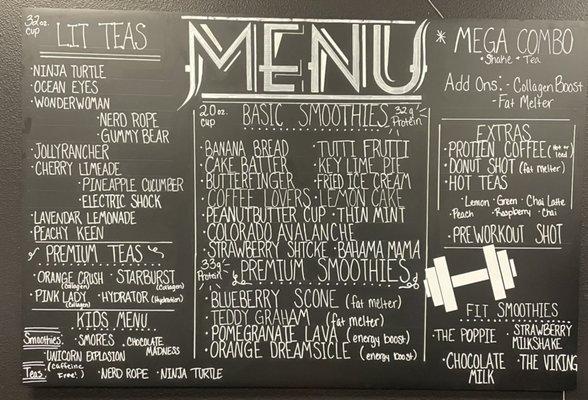 32oz. cup
LIT TEAS
· NINJA TURTLE
· OCEAN EYES
· WONDERWOMAN
· NERD ROPE
· GUMMY BEAR
· JOLLYRANCHER
· CHERRY LIMEADE
· PINEAPPLE CUCUMBER
· ELECTRIC SHOCK
· LAVENDAR LEMONADE
· PEACHY KEEN
PREMIUM TEAS
· ORANGE CRUSH (Collagen) · STARBURST (Collagen)
· PINK LADY (Collagen) · HYDRATOR (Hydration)
KIDS MENU
Smoothies: · SMORES · CHOCOLATE MADNESS
· UNICORN EXPLOSION
(caffeine Free!)
Teas: · NERD ROPE · NINJA TURTLE
MENU
20oz. cup
BASIC SMOOTHIES
32g Protein
· BANANA BREAD · TUTTI FRUTTI
· CAKE BATTER · KEY LIME PIE
· BUTTERFINGER · FRIED ICE CREAM
· COFFEE LOVERS · LEMON CAKE
· PEANUTBUTTER CUP · THIN MINT
· COLORADO AVALANCHE
· STRAWBERRY SHTCKE · BAHAMA MAMA
33g Protein
PREMIUM SMOOTHIES
· BLUEBERRY SCONE (fat melter)
· TEDDY GRAHAM (fat melter)
· POMEGRANATE LAVA (energy boost)
· ORANGE DREAMSICLE (energy boost)
* MEGA COMBO
· Shake + Tea
Add Ons: - Collagen Boost
- Fat Melter
EXTRAS
· PROTIEN COFFEE (Hot or Iced)
· DONUT SHOT (fat melter)
· HOT TEAS
· Lemon · Green · Chai Latte
· Peach · Raspberry · Chai
· PREWORKOUT SHOT
FIT SMOOTHIES
· THE POPPIE · STRAWBERRY MILKSHAKE
· CHOCOLATE MILK · THE VIKING